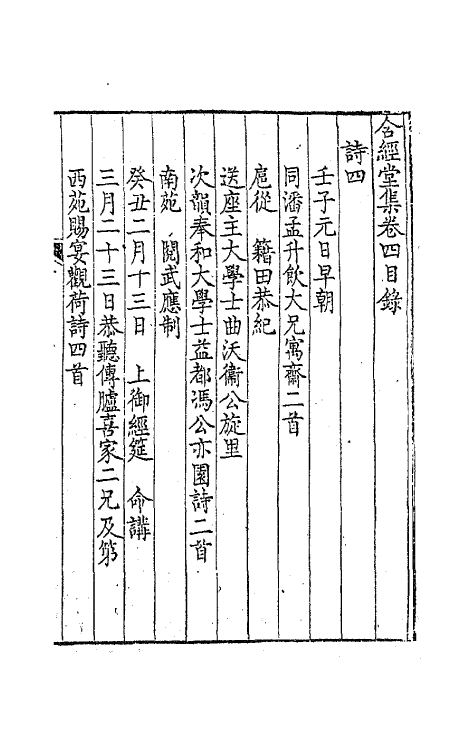 含經堂集卷四目錄
詩四
壬子元日早朝
同潘孟升飲大兄寓齋二首
扈從 籍田恭紀
送座主大學士曲沃衞公旋里
次韻奉和大學士益都馮公亦園詩二首
南苑 閱武應制
癸丑二月十三日 上御經筵 命講
三月二十三日恭聽傳臚喜家二兄及第
西苑賜宴觀荷詩四首